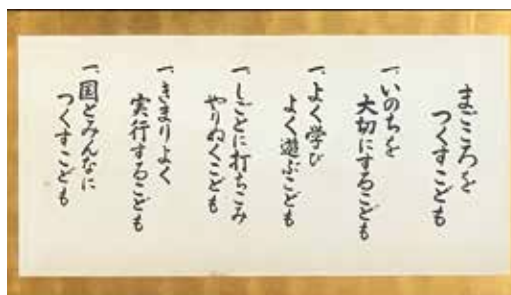 まごころを
つくすこども
一、いのちを
大切にするこども
一、よく学び
よく遊ぶこども
一、しごとに打ちこみ
やりぬくこども
一、きまりよく
実行するこども
一、国とみんなに
つくすこども